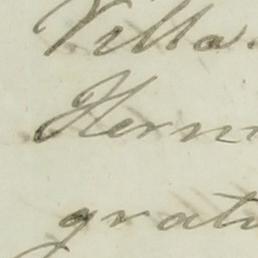 Villa
Hern
grat